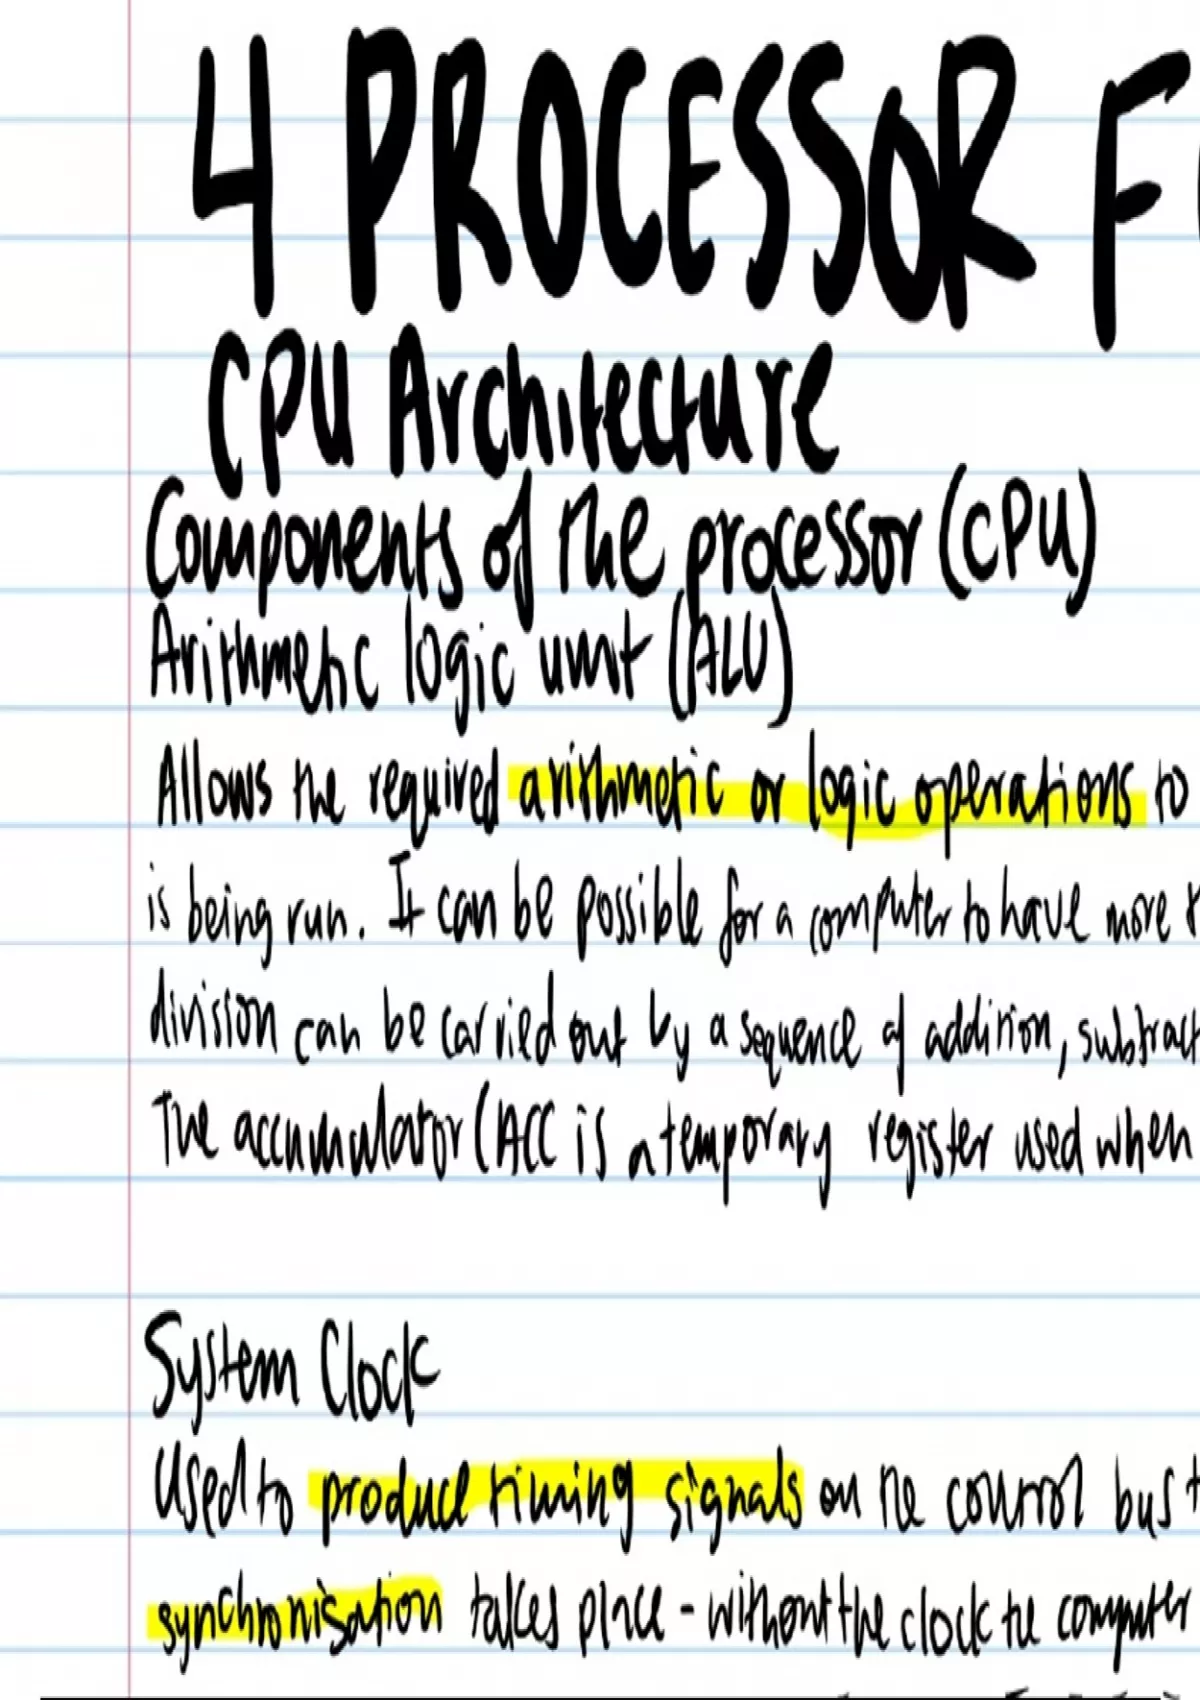 4 PROCESSOR F
CPU Architecture
Components of the processor (CPU)
Arithmetic logic unit (ALU)
Allows the required arithmetic or logic operations to
is being run. It can be possible for a computer to have more
division can be carried out by a sequence of addition, subtract
The accumulator (ACC is a temporary register used when
System Clock
Used to produce timing signals on the control bus
synchronisation takes place - without the clock the computer